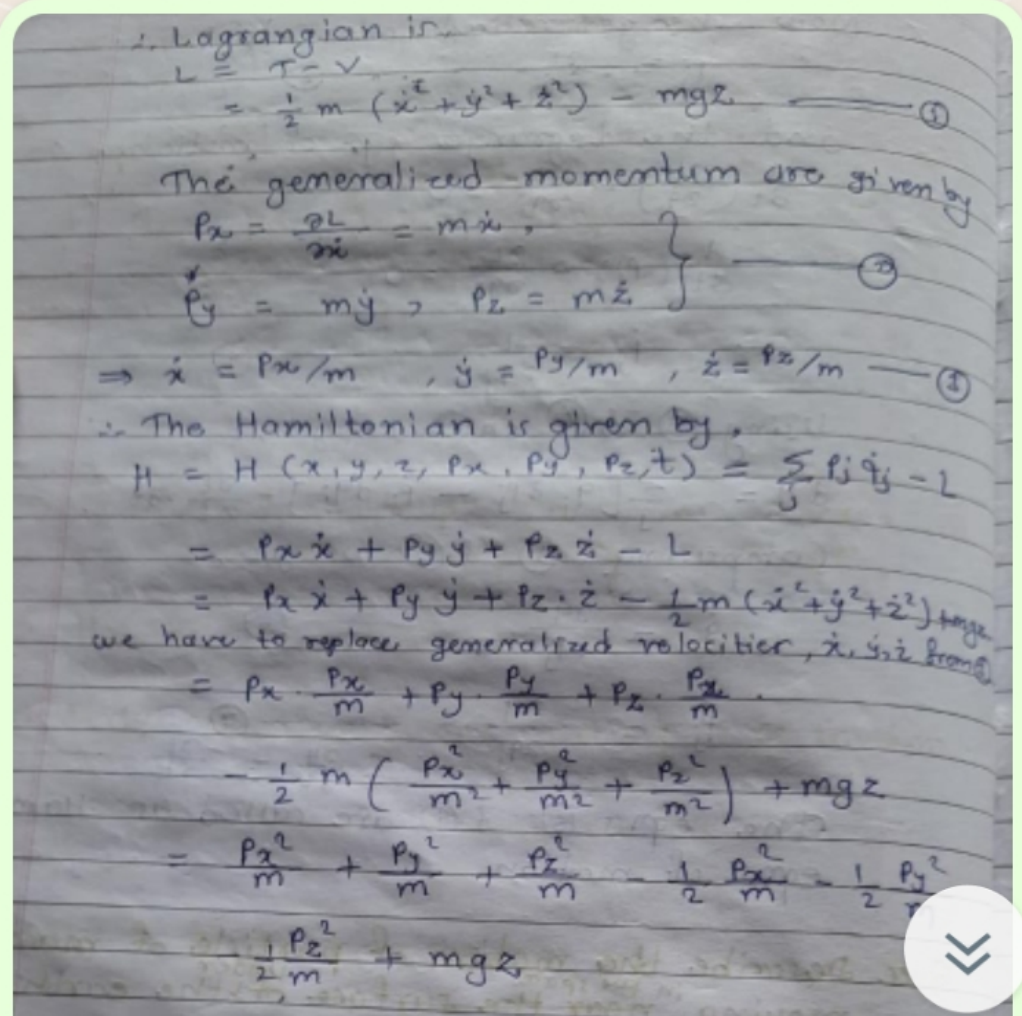 ∴ Lagrangian is
L = T - V
= 1/2 m (ẋ² + ẏ² + ż²) - mgz —— ①
The generalized momentum are given by
Px = ∂L/∂ẋ = mẋ,
Py = mẏ, Pz = mż } ——
⇒ ẋ = Px/m , ẏ = Py/m , ż = Pz/m ——
∴ The Hamiltonian is given by,
H = H (x, y, z, Px, Py, Pz, t) = Σj Pj q̇j - L
= Px ẋ + Py ẏ + Pz ż - L
= Px ẋ + Py ẏ + Pz · ż - 1/2 m (ẋ² + ẏ² + ż²) + mgz
we have to replace generalized velocities, ẋ, ẏ, ż from
= Px · Px/m + Py · Py/m + Pz · /m
- 1/2 m ( Px²/m² + Py²/m² + Pz²/m² ) + mgz
= Px²/m + Py²/m + Pz²/m - 1/2 Px²/m - 1/2 Py²/
- 1/2 Pz²/m + mgz